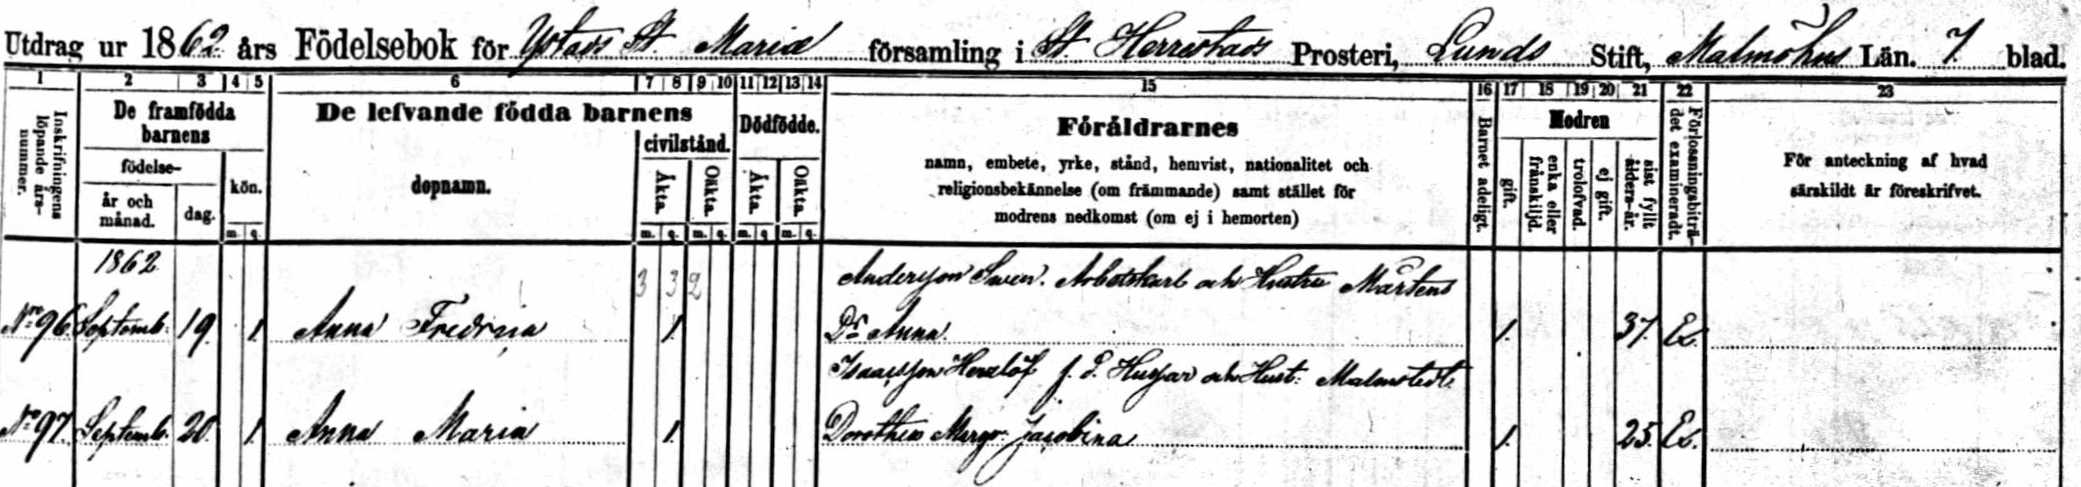 Utdrag ur 1862 års Födelsebok för Ystads St. Mariæ församling i St. Herrestads Prosteri, Lunds Stift, Malmöhus Län. 7 blad.
1 2 3 4 5 6 7 8 9 10 11 12 13 14 15 16 17 18 19 20 21 22 23
Inskrifningens löpande års-nummer.
De framfödda barnens
födelse-
år och månad.
dag.
kön.
m. q.
De lefvande födda barnens
dopnamn.
civilstånd.
Äkta.
Oäkta.
m. q. m. q.
Dödfödde.
Äkta.
Oäkta.
m. q. m. q.
Föräldrarnes
namn, embete, yrke, stånd, hemvist, nationalitet och
religionsbekännelse (om främmande) samt stället för
modrens nedkomst (om ej i hemorten)
Barnet adeligt.
Modren
gift.
enka eller frånskiljd.
trolofvad.
ej gift.
sist fyllt ålders-år.
Förlossningsbiträ-det examineradt.
För anteckning af hvad
särskildt är föreskrifvet.
1862
3 3 2
Andersson Swen. Arbetskarl och Hustru Mårtens
Nro 96 Septemb. 19. 1. Anna Fredrica 1. Dr Anna. 1. 37. Ex.
Isaacsson Herrlöf f. d. Husar och Hust: Malmstedt
No 97. Septemb. 20. 1. Anna Maria 1. Dorothea Margr. Jacobina 1. 25. Ex.